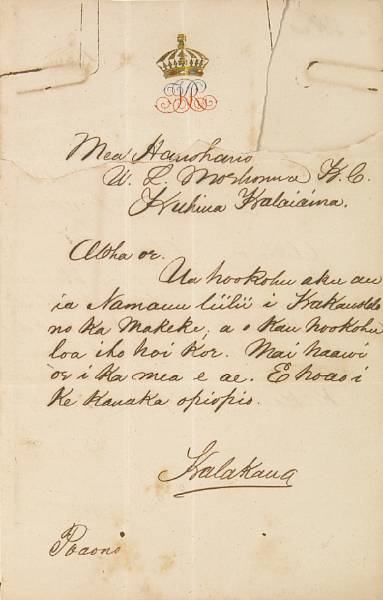 Mea Hanohano
W. L. Moehonua K. C.
Kuhina Kalaiaina.
Aloha oe.
Ua hookohu aku au
ia Namauu liilii i
no ka Makeke, a o kau hookohu
loa iho hoi koe. Mai haawi
oe i ka mea e ae. E hoao i
ke kanaka opiopio.
Kalakaua
Poaono